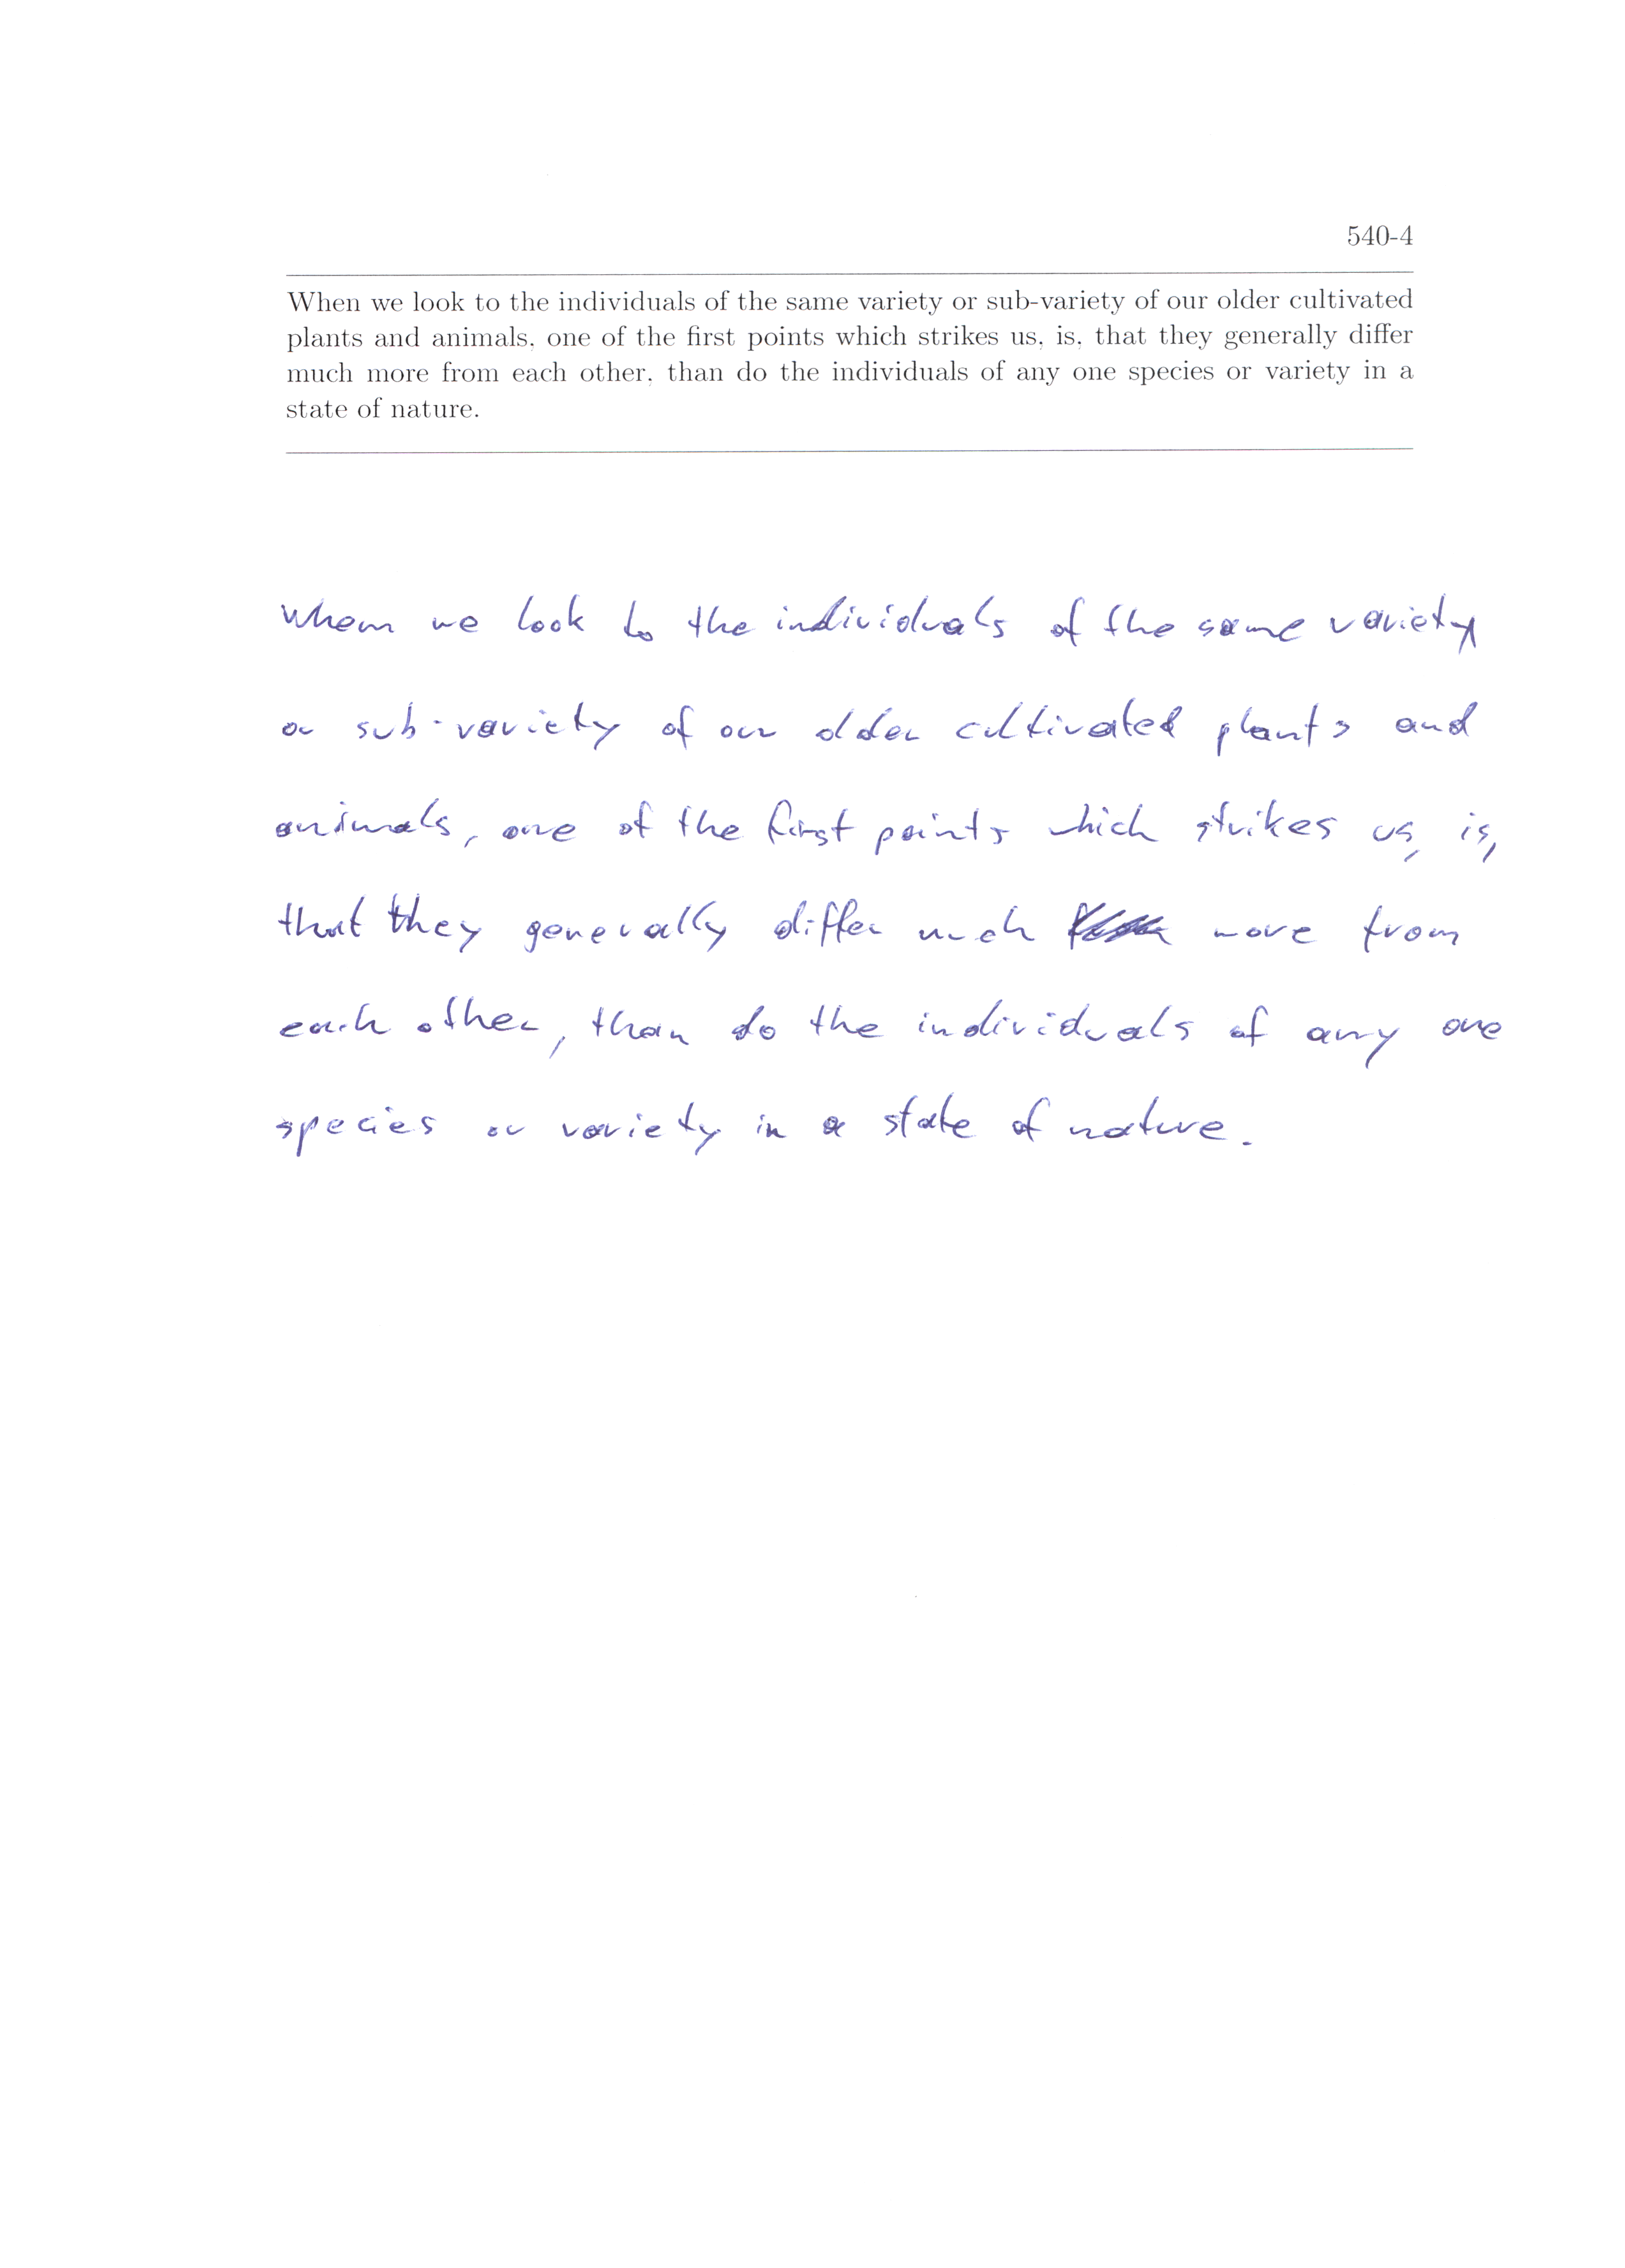 540-4
When we look to the individuals of the same variety or sub-variety of our older cultivated
plants and animals, one of the first points which strikes us, is, that they generally differ
much more from each other, than do the individuals of any one species or variety in a
state of nature.
When we look to the individuals of the same variety
or sub-variety of our older cultivated plants and
animals, one of the first points which strikes us, is,
that they generally differ much more from
each other, than do the individuals of any one
species or variety in a state of nature.